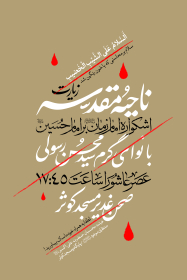 السلام علی الشیب الخضیب
زیارت
ناحیه مقدسه
اشکواره امام زمان بر امام حسین
با نوای گرم سید محسن رسولی
عصر عاشورا ساعت ۱۷:۴۵
صحن غدیر مسجد کوثر